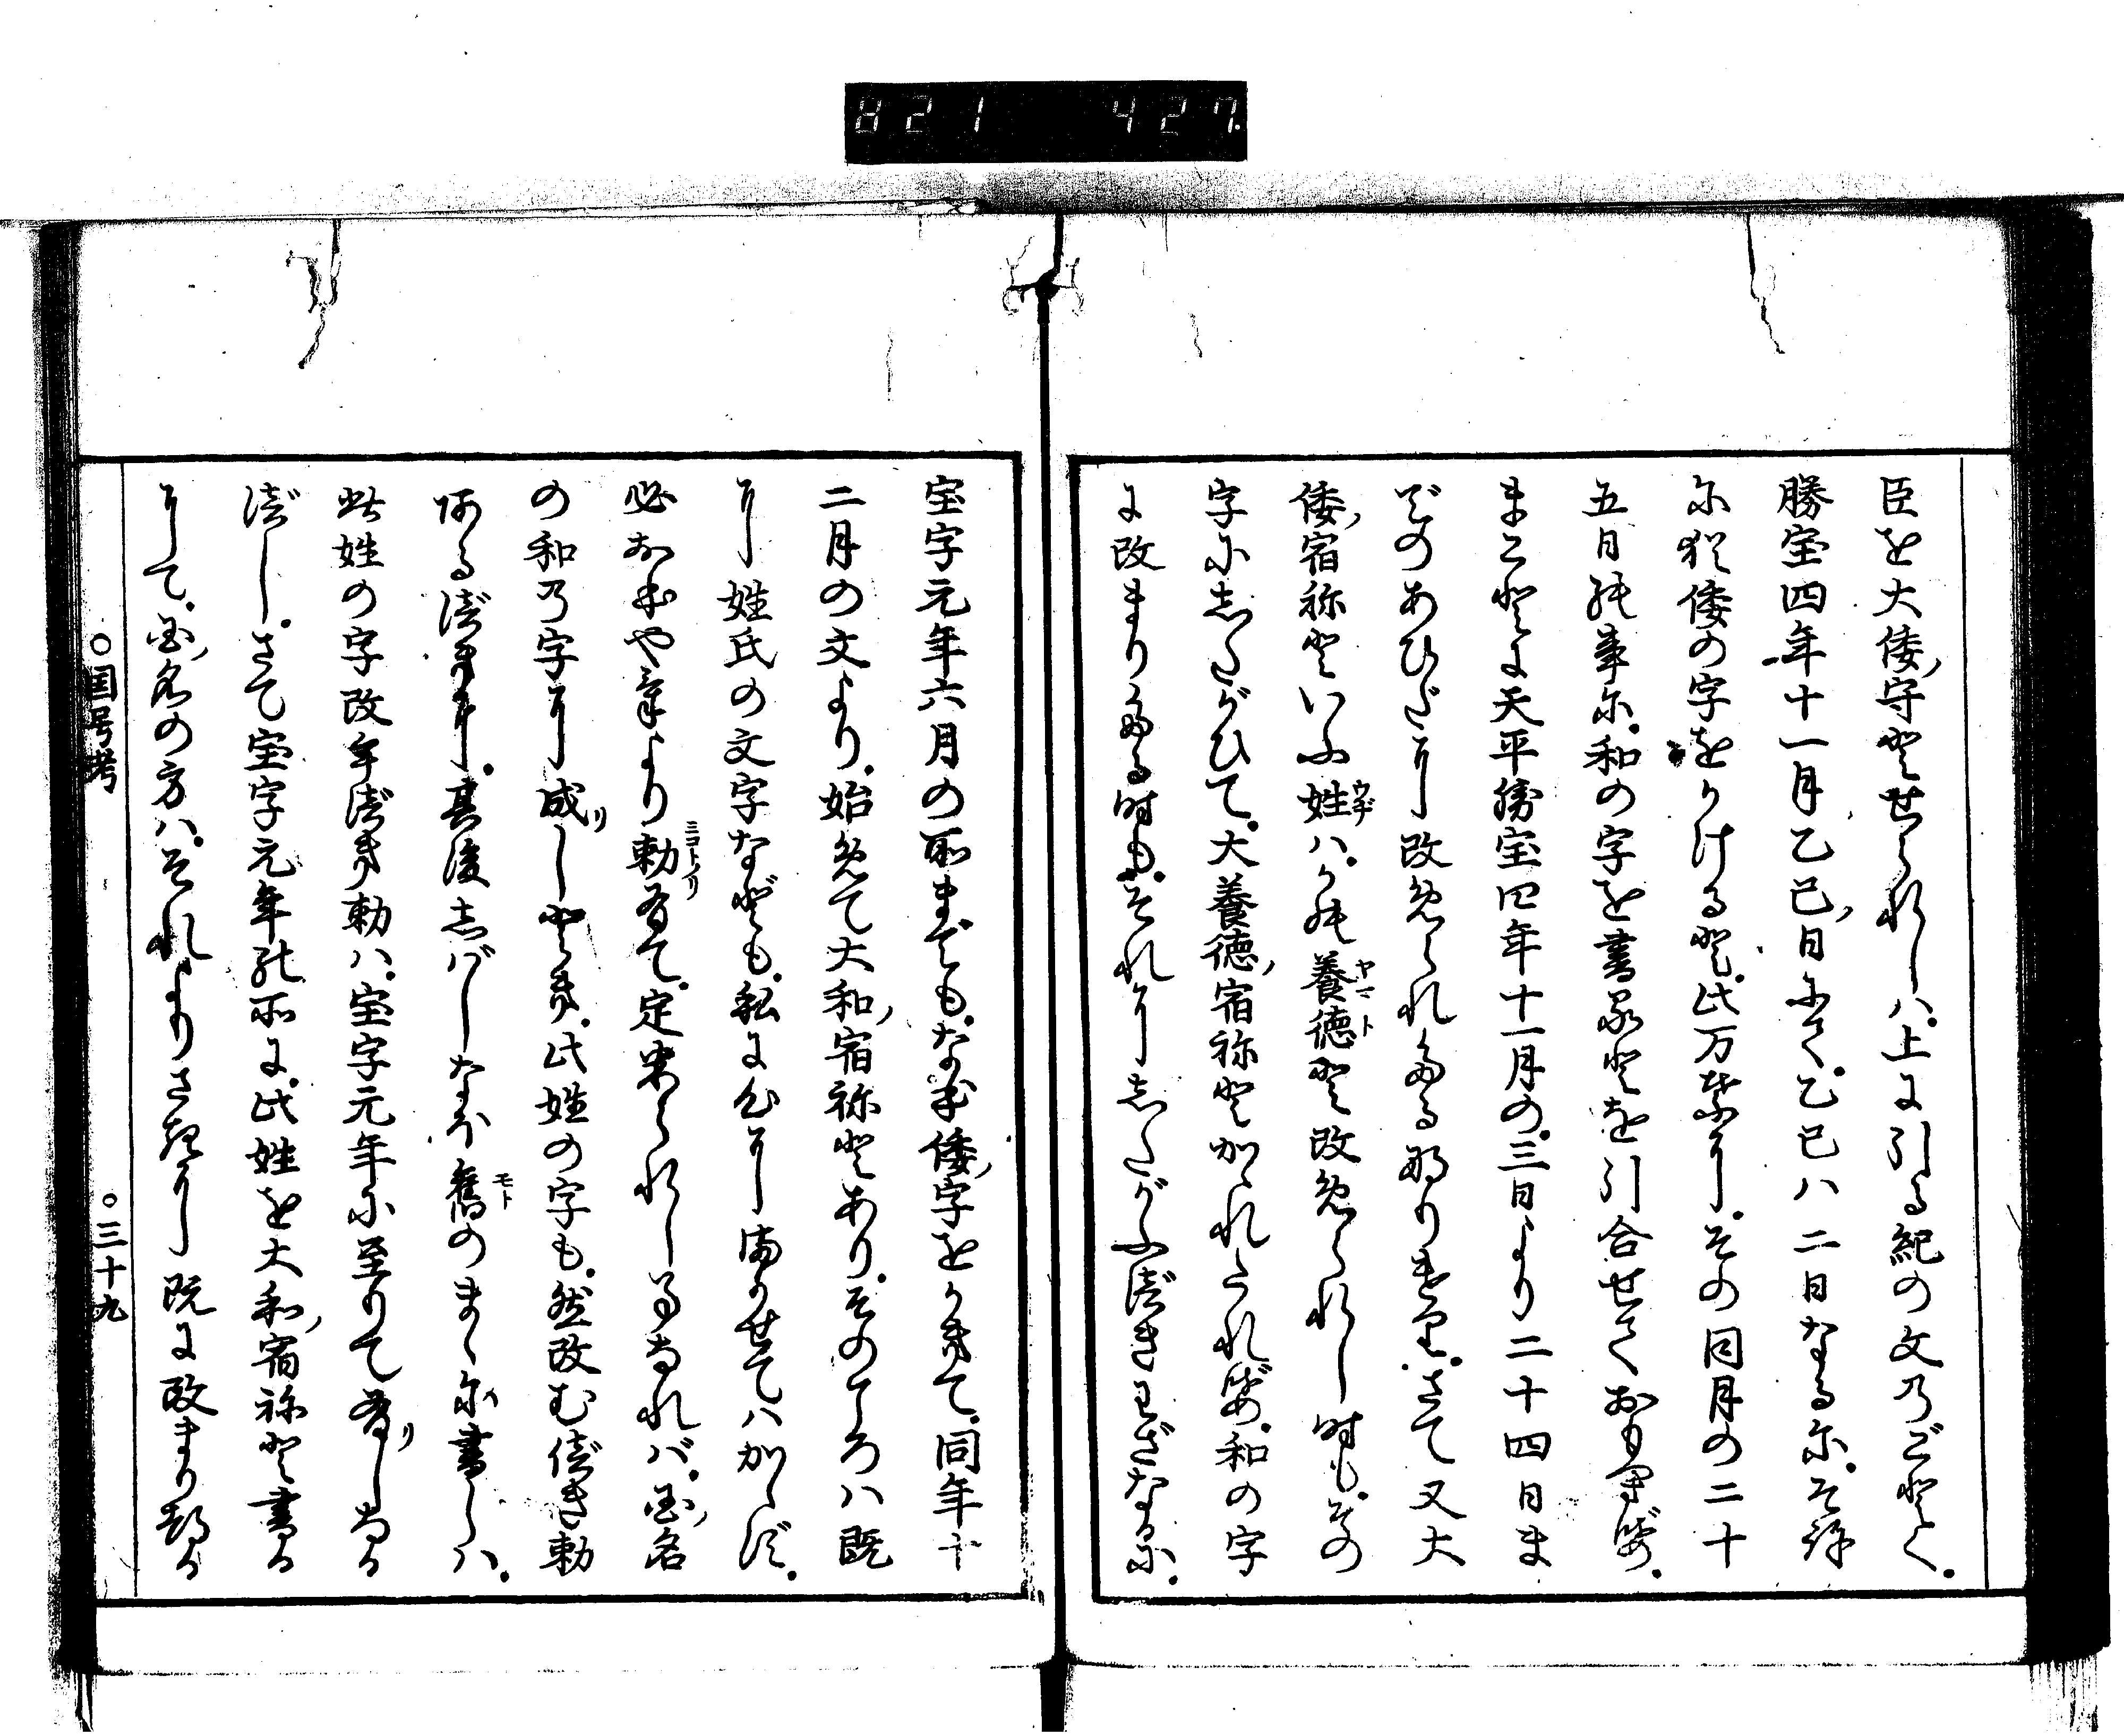 821 427
臣を大倭ノ守とせられしハ。上に引る紀の文のごとく。
勝宝四年十一月乙巳ノ日にて。乙巳ハ二日なるに。それ
に猶倭の字をかける也。此万葉に。その同月の二十
五日の事に。和の字を書るとを引合せておもへば。
まことに天平勝宝四年十一月の。三日より二十四日ま
でのあひだに改められたる也けり。さて又大
倭ノ宿祢といふ姓ハ。かの養徳と改められし時も。その
字にしたがひて。大養徳ノ宿祢とかゝれたれば。和の字
に改まりたる時も。それにしたがふべきわざなるに。
宝字元年六月の所までも。なほ倭ノ字をかきて。同年十
二月の文より。始めて大和ノ宿祢とあり。そのころハ既
に姓氏の文字なども。私に心にまかせてハかゝず。
必おほやけより勅有て。定めらしれし事なれバ。国ノ名
の和の字に成リしとき。此姓の字も。然改むべき勅
あるべきに。其後しばしなほ舊のまゝに書しハ。
此姓の字改むべき勅ハ。宝字元年に至りて有リしなる
べし。さて宝字元年の所に。此姓を大和ノ宿祢と書る
にて。国ノ名の方ハ。それよりさきに既に改まりたる
○国号考
○三十九